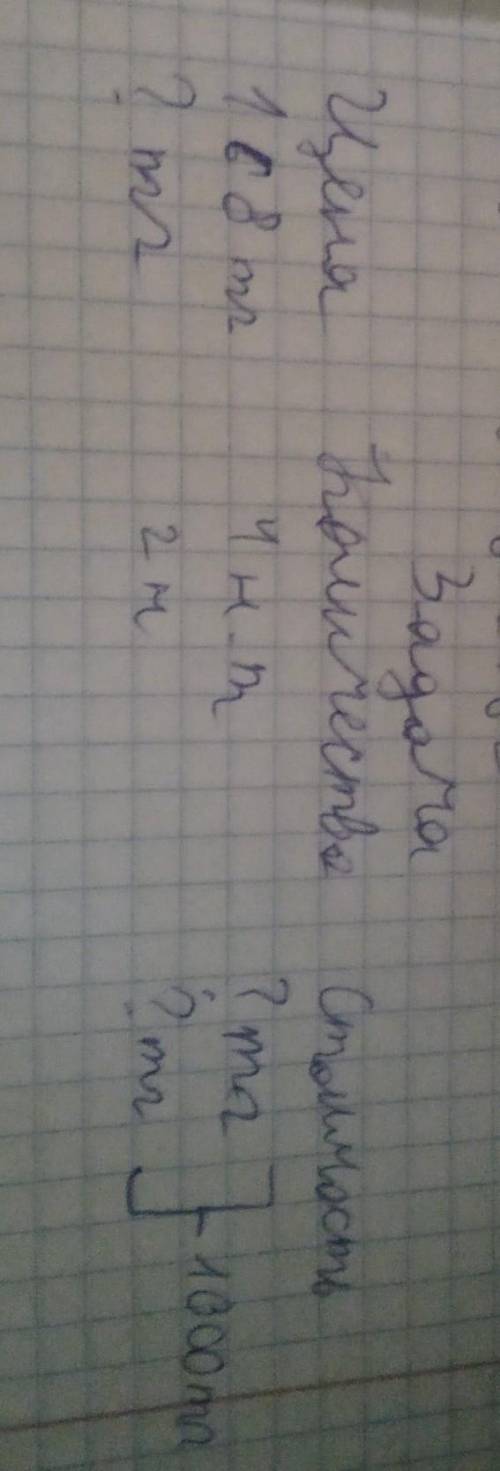 Задача
Цена Количество Стоимость
168 тг 4 н.т ? тг
? тг 2 н ? тг 1000 тг